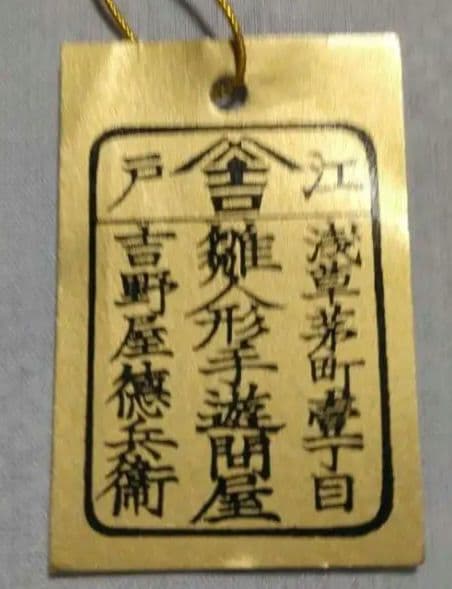 江戸
吉
浅草茅町壹丁目
雛人形手遊問屋
吉野屋德兵衛